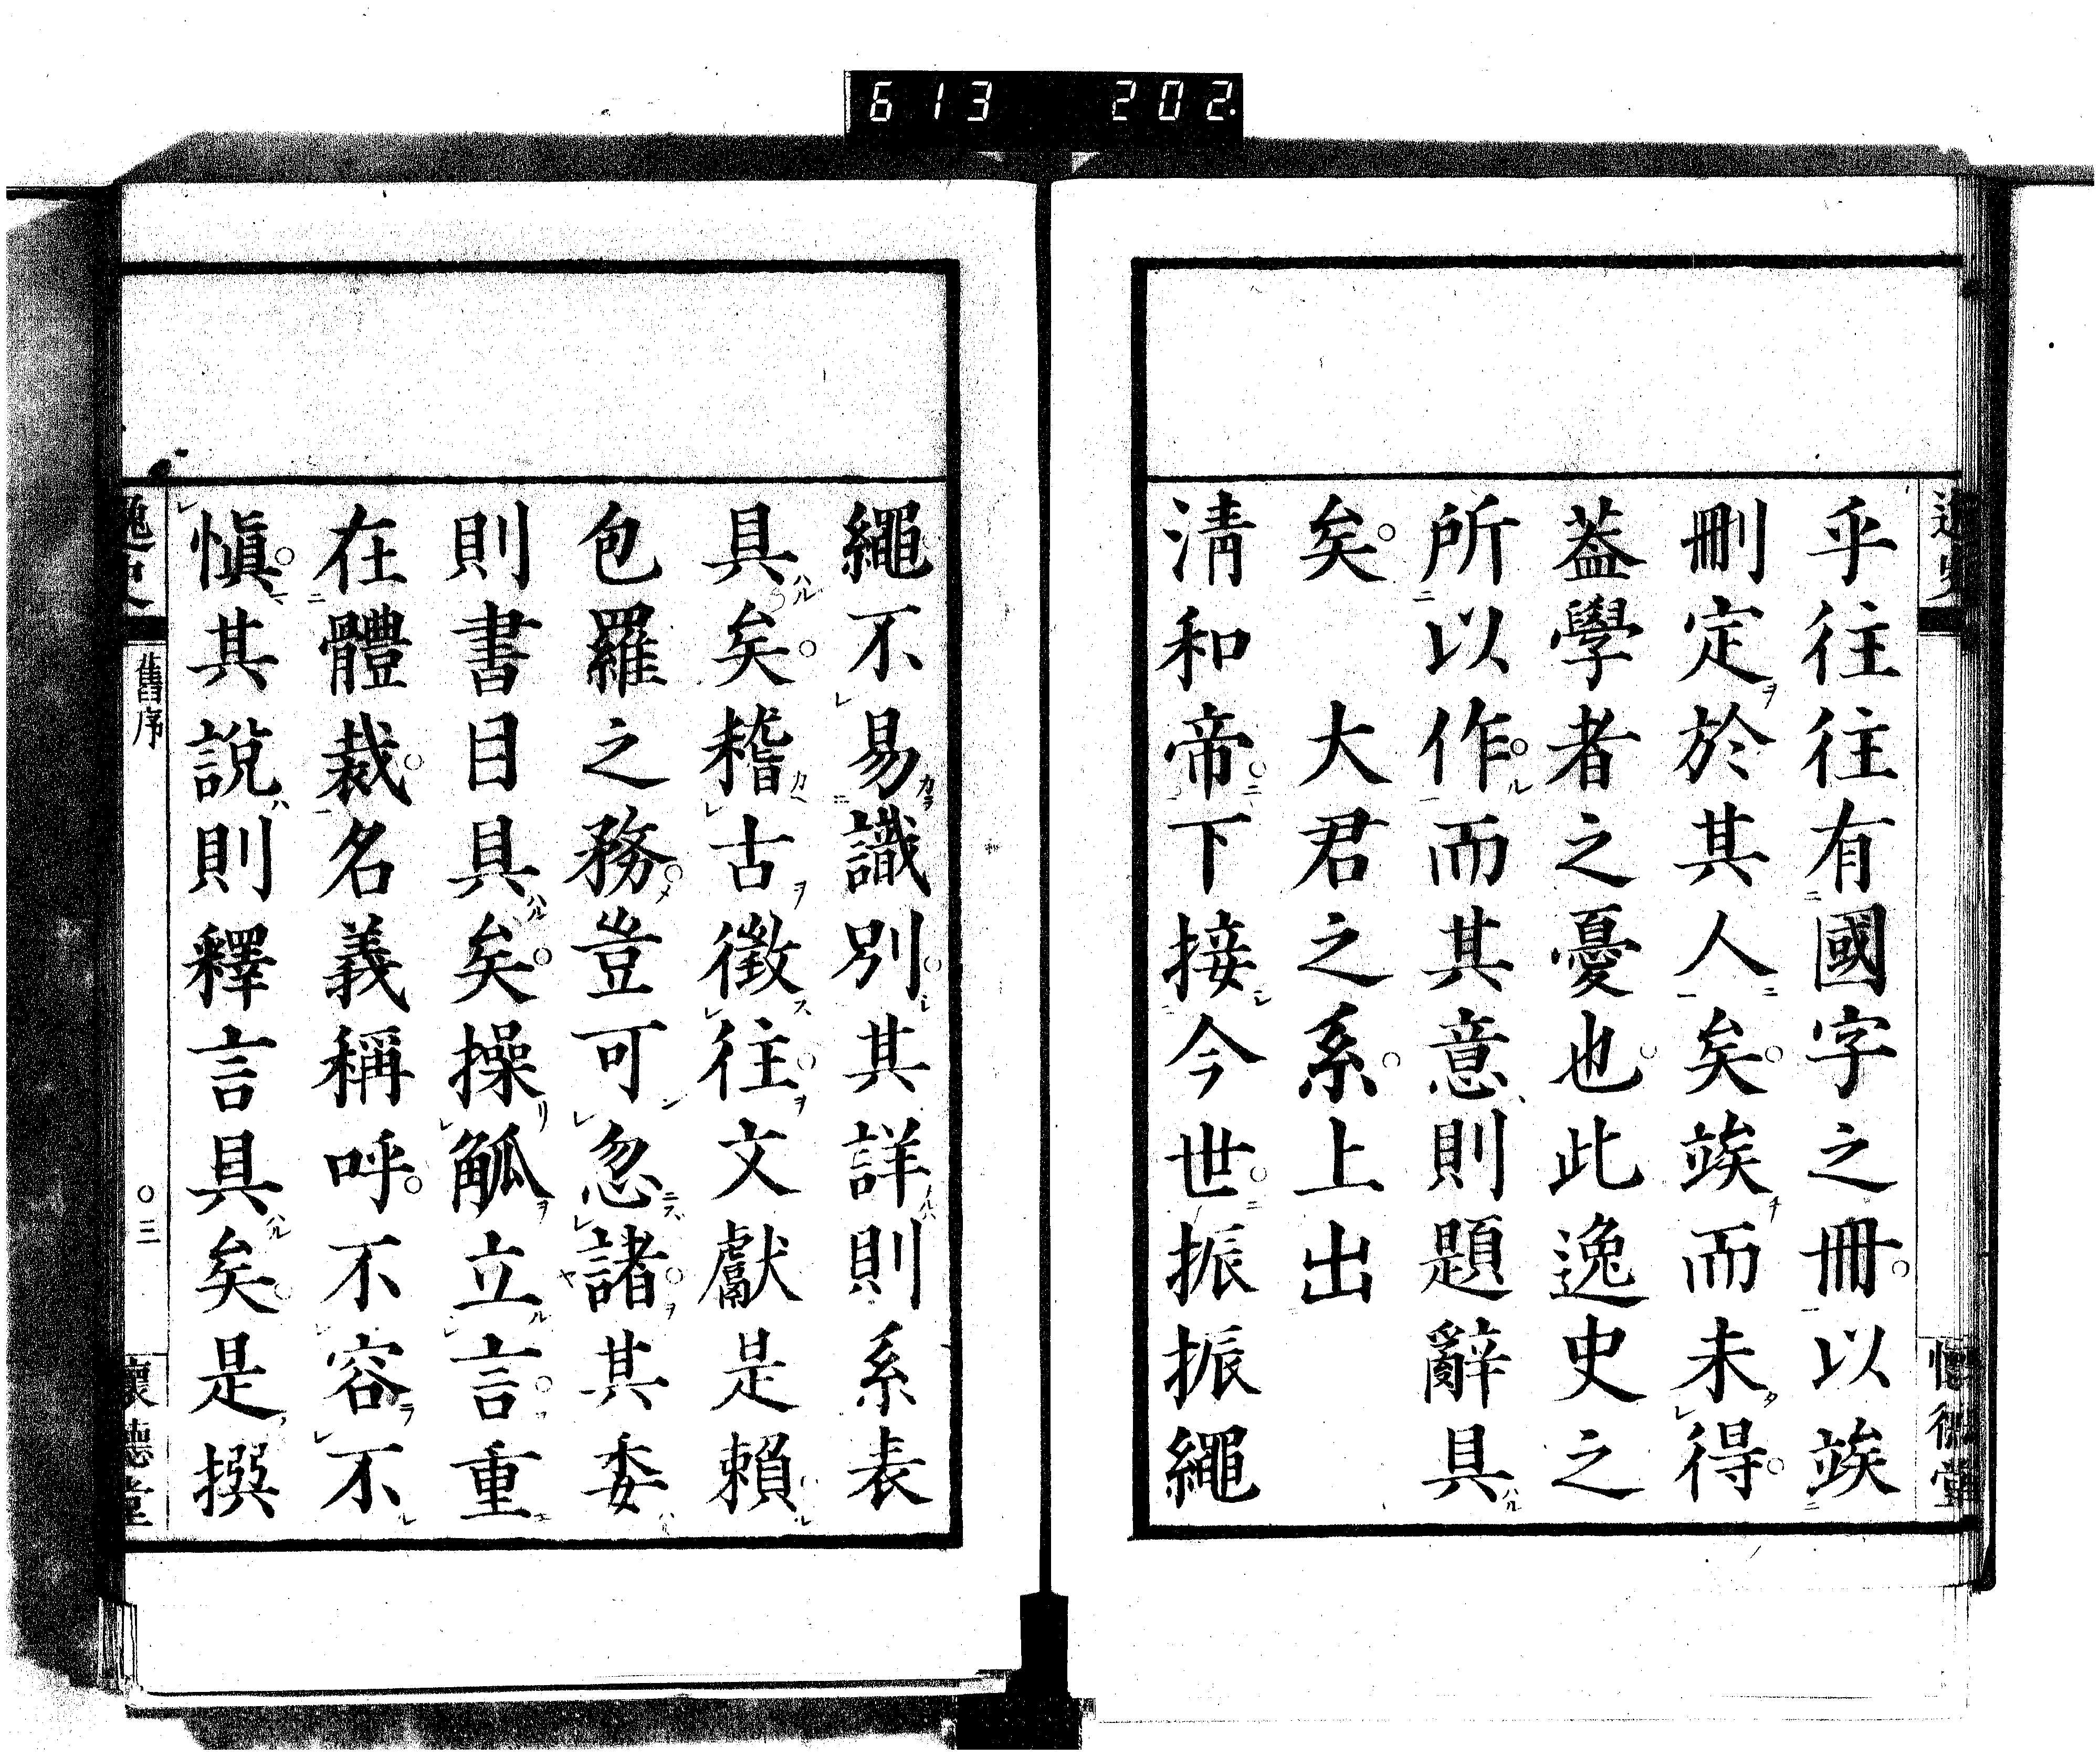 613 202.
逸史
懷德堂
乎往往有國字之冊以竢
刪定於其人矣竢而未得
葢學者之憂也此逸史之
所以作而其意則題辭具
矣 大君之系上出
淸和帝下接今世振振繩
繩不易識別其詳則系表
具矣稽古徵往文獻是賴
包羅之務豈可忽諸其委
則書目具矣操觚立言重
在體裁名義稱呼不容不
愼其說則釋言具矣是撰
逸史
舊序
〇三
懷德堂